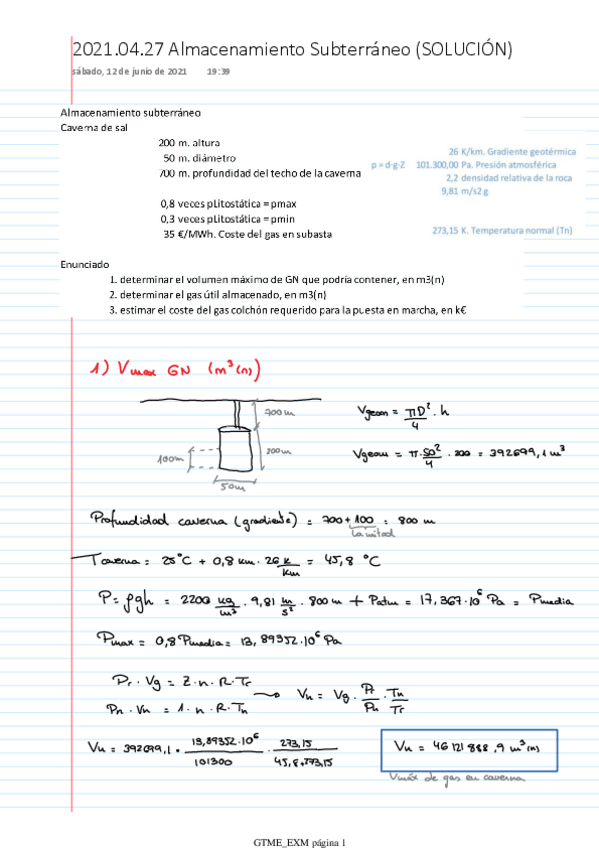 2021.04.27 Almacenamiento Subterráneo (SOLUCIÓN)
sábado, 12 de junio de 2021 19:39
Almacenamiento subterráneo
Caverna de sal
200 m. altura
50 m. diámetro
700 m. profundidad del techo de la caverna
26 K/km. Gradiente geotérmica
p = d·g·Z 101.300,00 Pa. Presión atmosférica
2,2 densidad relativa de la roca
9,81 m/s2 g
0,8 veces pLitostática = pmax
0,3 veces pLitostática = pmin
35 €/MWh. Coste del gas en subasta
273,15 K. Temperatura normal (Tn)
Enunciado
1. determinar el volumen máximo de GN que podría contener, en m3(n)
2. determinar el gas útil almacenado, en m3(n)
3. estimar el coste del gas colchón requerido para la puesta en marcha, en k€
1) Vmax GN (m³(n))
700m
200m
100m
50m
Vgeom = πD²/4 · h
Vgeom = π·50²/4 · 200 = 392699,1 m³
Profundidad caverna (gradiente) = 700 + 100 = 800 m
La mitad
Tcaverna = 25°C + 0,8 km · 26 K/km = 45,8 °C
P = ρgh = 2200 kg/m³ · 9,81 m/s² · 800 m + Patm = 17,367·10⁶ Pa = Pmedia
Pmax = 0,8 Pmedia = 13,89352·10⁶ Pa
Pr · Vg = Z·n·R·Tr
Pn · Vn = 1·n·R·Tn
Vn = Vg · Pr/Pn · Tn/Tr
Vn = 392099,1 · 13,89352·10⁶/101300 · 273,15/45,8+273,15
Vn = 46 121 888,9 m³(n)
Vmáx de gas en caverna
GTME_EXM página 1